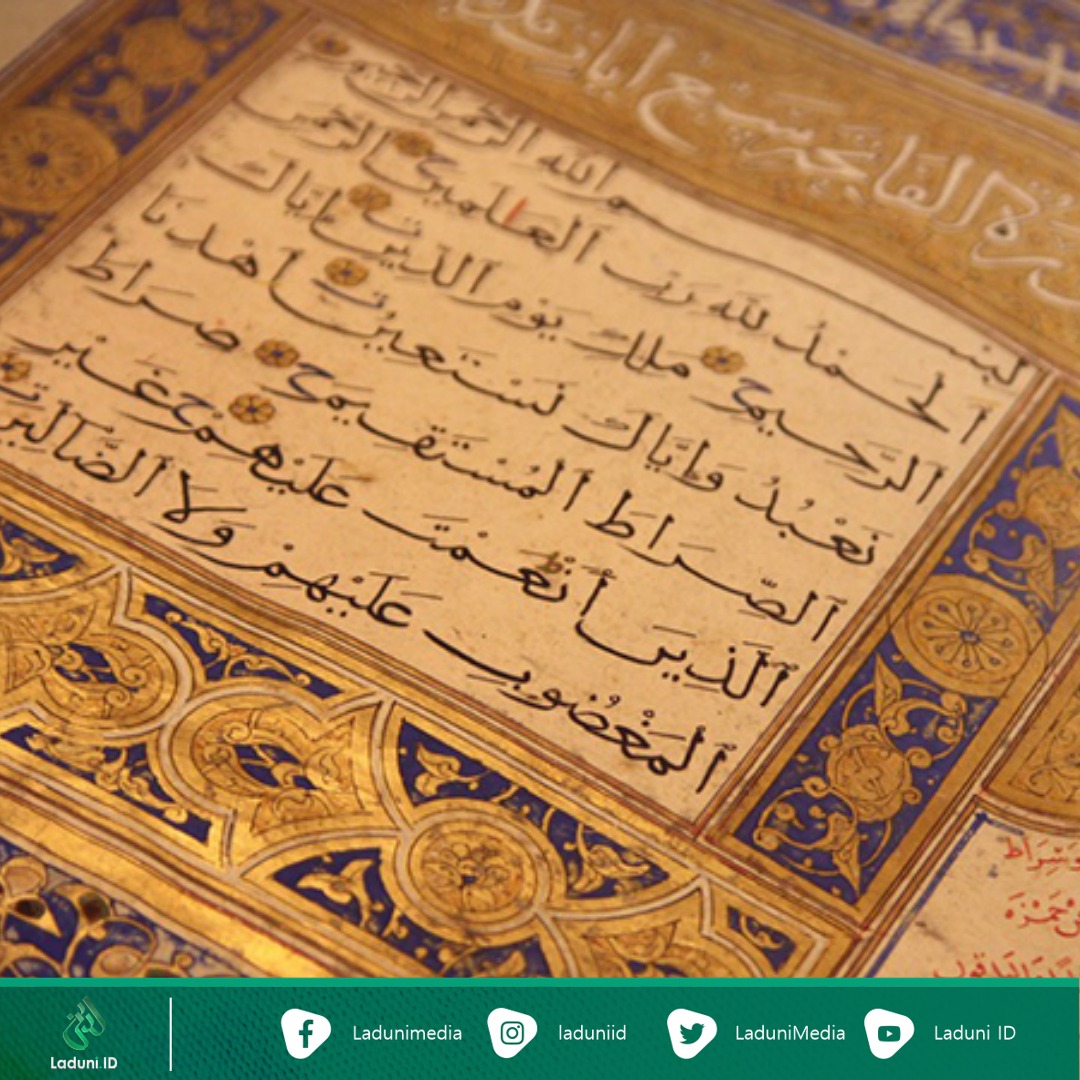 سورة الفاتحة سبع ايات
بسم الله الرحمن الرحيم
الحمدُ لله رب العالمين الرحمن
الرحيم ملك يوم الدين اياك
نَعْبُدُ وَايَّاك نَسْتَعين اهدنا
الصّراطَ المُسْتَقيم صراط
الَّذينَ أنْعَمْتَ عَلَيْهم غَيْر
المَغْضُوب عَلَيْهمْ وَلا الضَّالين
وَسراط
حَمْزَة
Laduni.ID
Ladunimedia
laduniid
LaduniMedia
Laduni ID